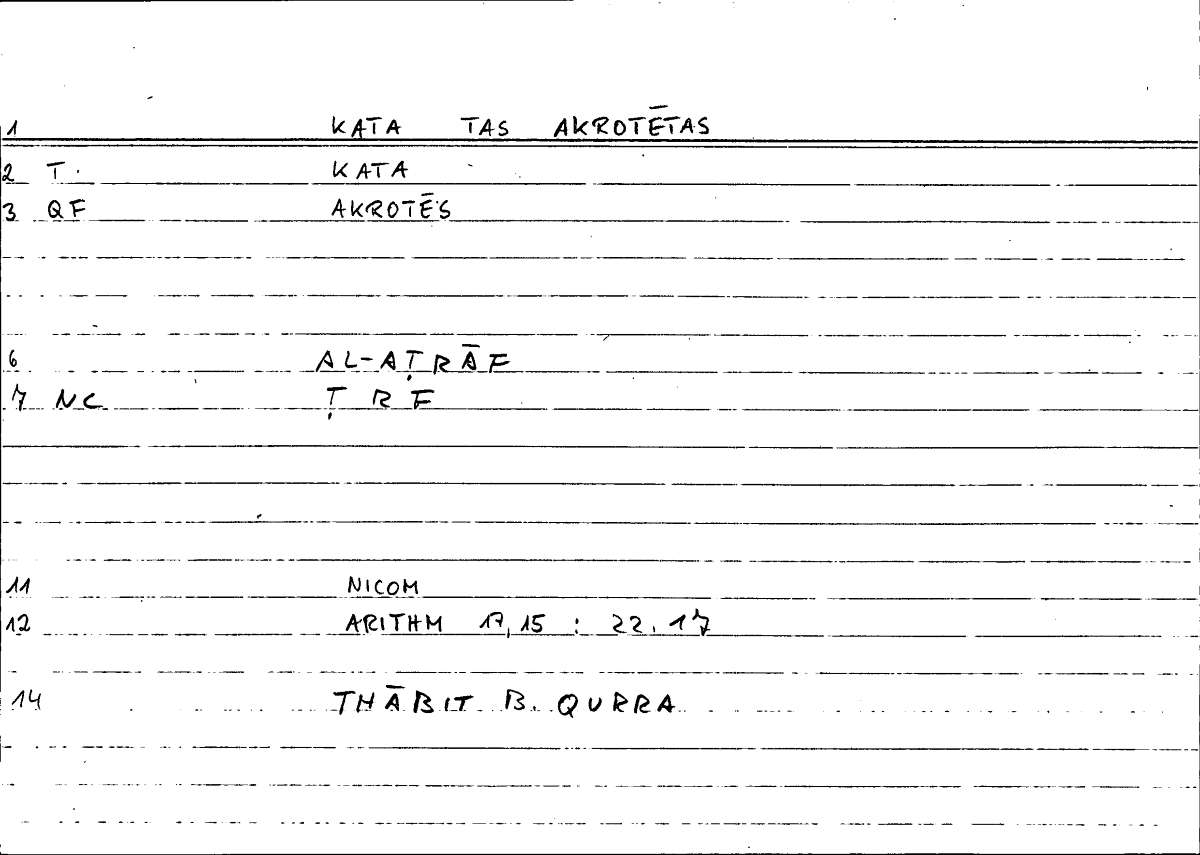 1 KATA TAS AKROTĒTAS
2 T. KATA
3 QF AKROTĒS
6 AL-AṬRĀF
7 NC Ṭ R F
11 NICOM
12 ARITHM 17,15 : 22.17
14 THĀBIT B. QURRA